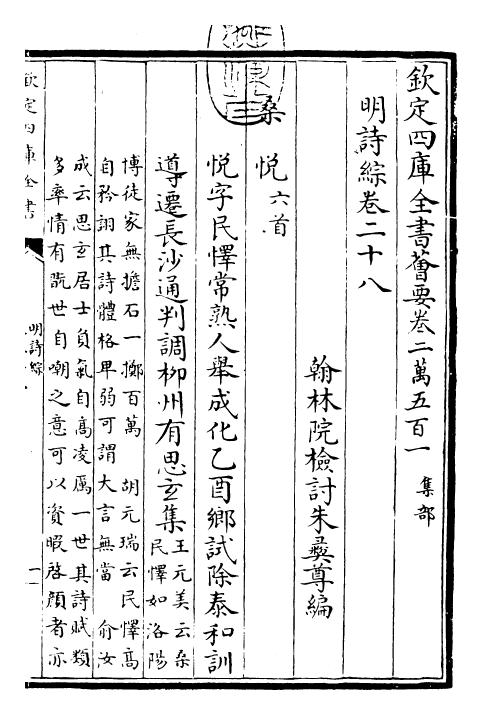 欽定四庫全書薈要卷二萬五百一 集部
明詩綜卷二十八
翰林院檢討朱彝尊編
桑悅 六首
悅字民懌常熟人舉成化乙酉鄉試除泰和訓
導遷長沙通判調柳州有思玄集
王元美云桑
民懌如洛陽
博徒家無擔石一擲百萬 胡元瑞云民懌高
自矜詡其詩體格卑弱可謂大言無當 俞汝
成云思玄居士負氣自高凌厲一世其詩賦類
多率情有翫世自嘲之意可以資暇啓顏者亦
欽定四庫全書
明詩綜
一